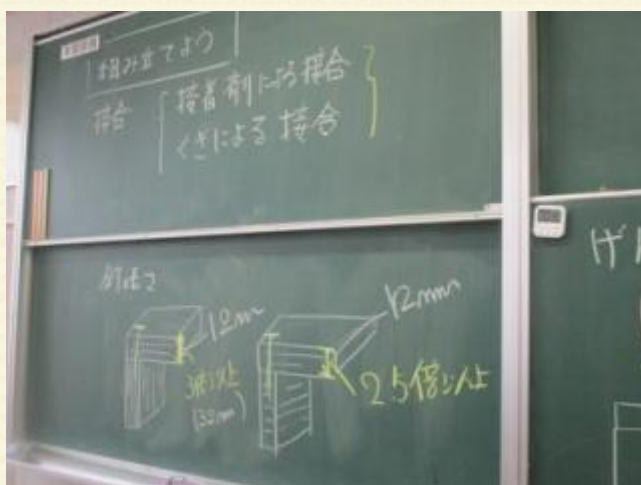 組み立てよう
接合
接着剤による接合
くぎによる接合
12m
3倍以上
(32mm)
12mm
2.5倍以上
げん